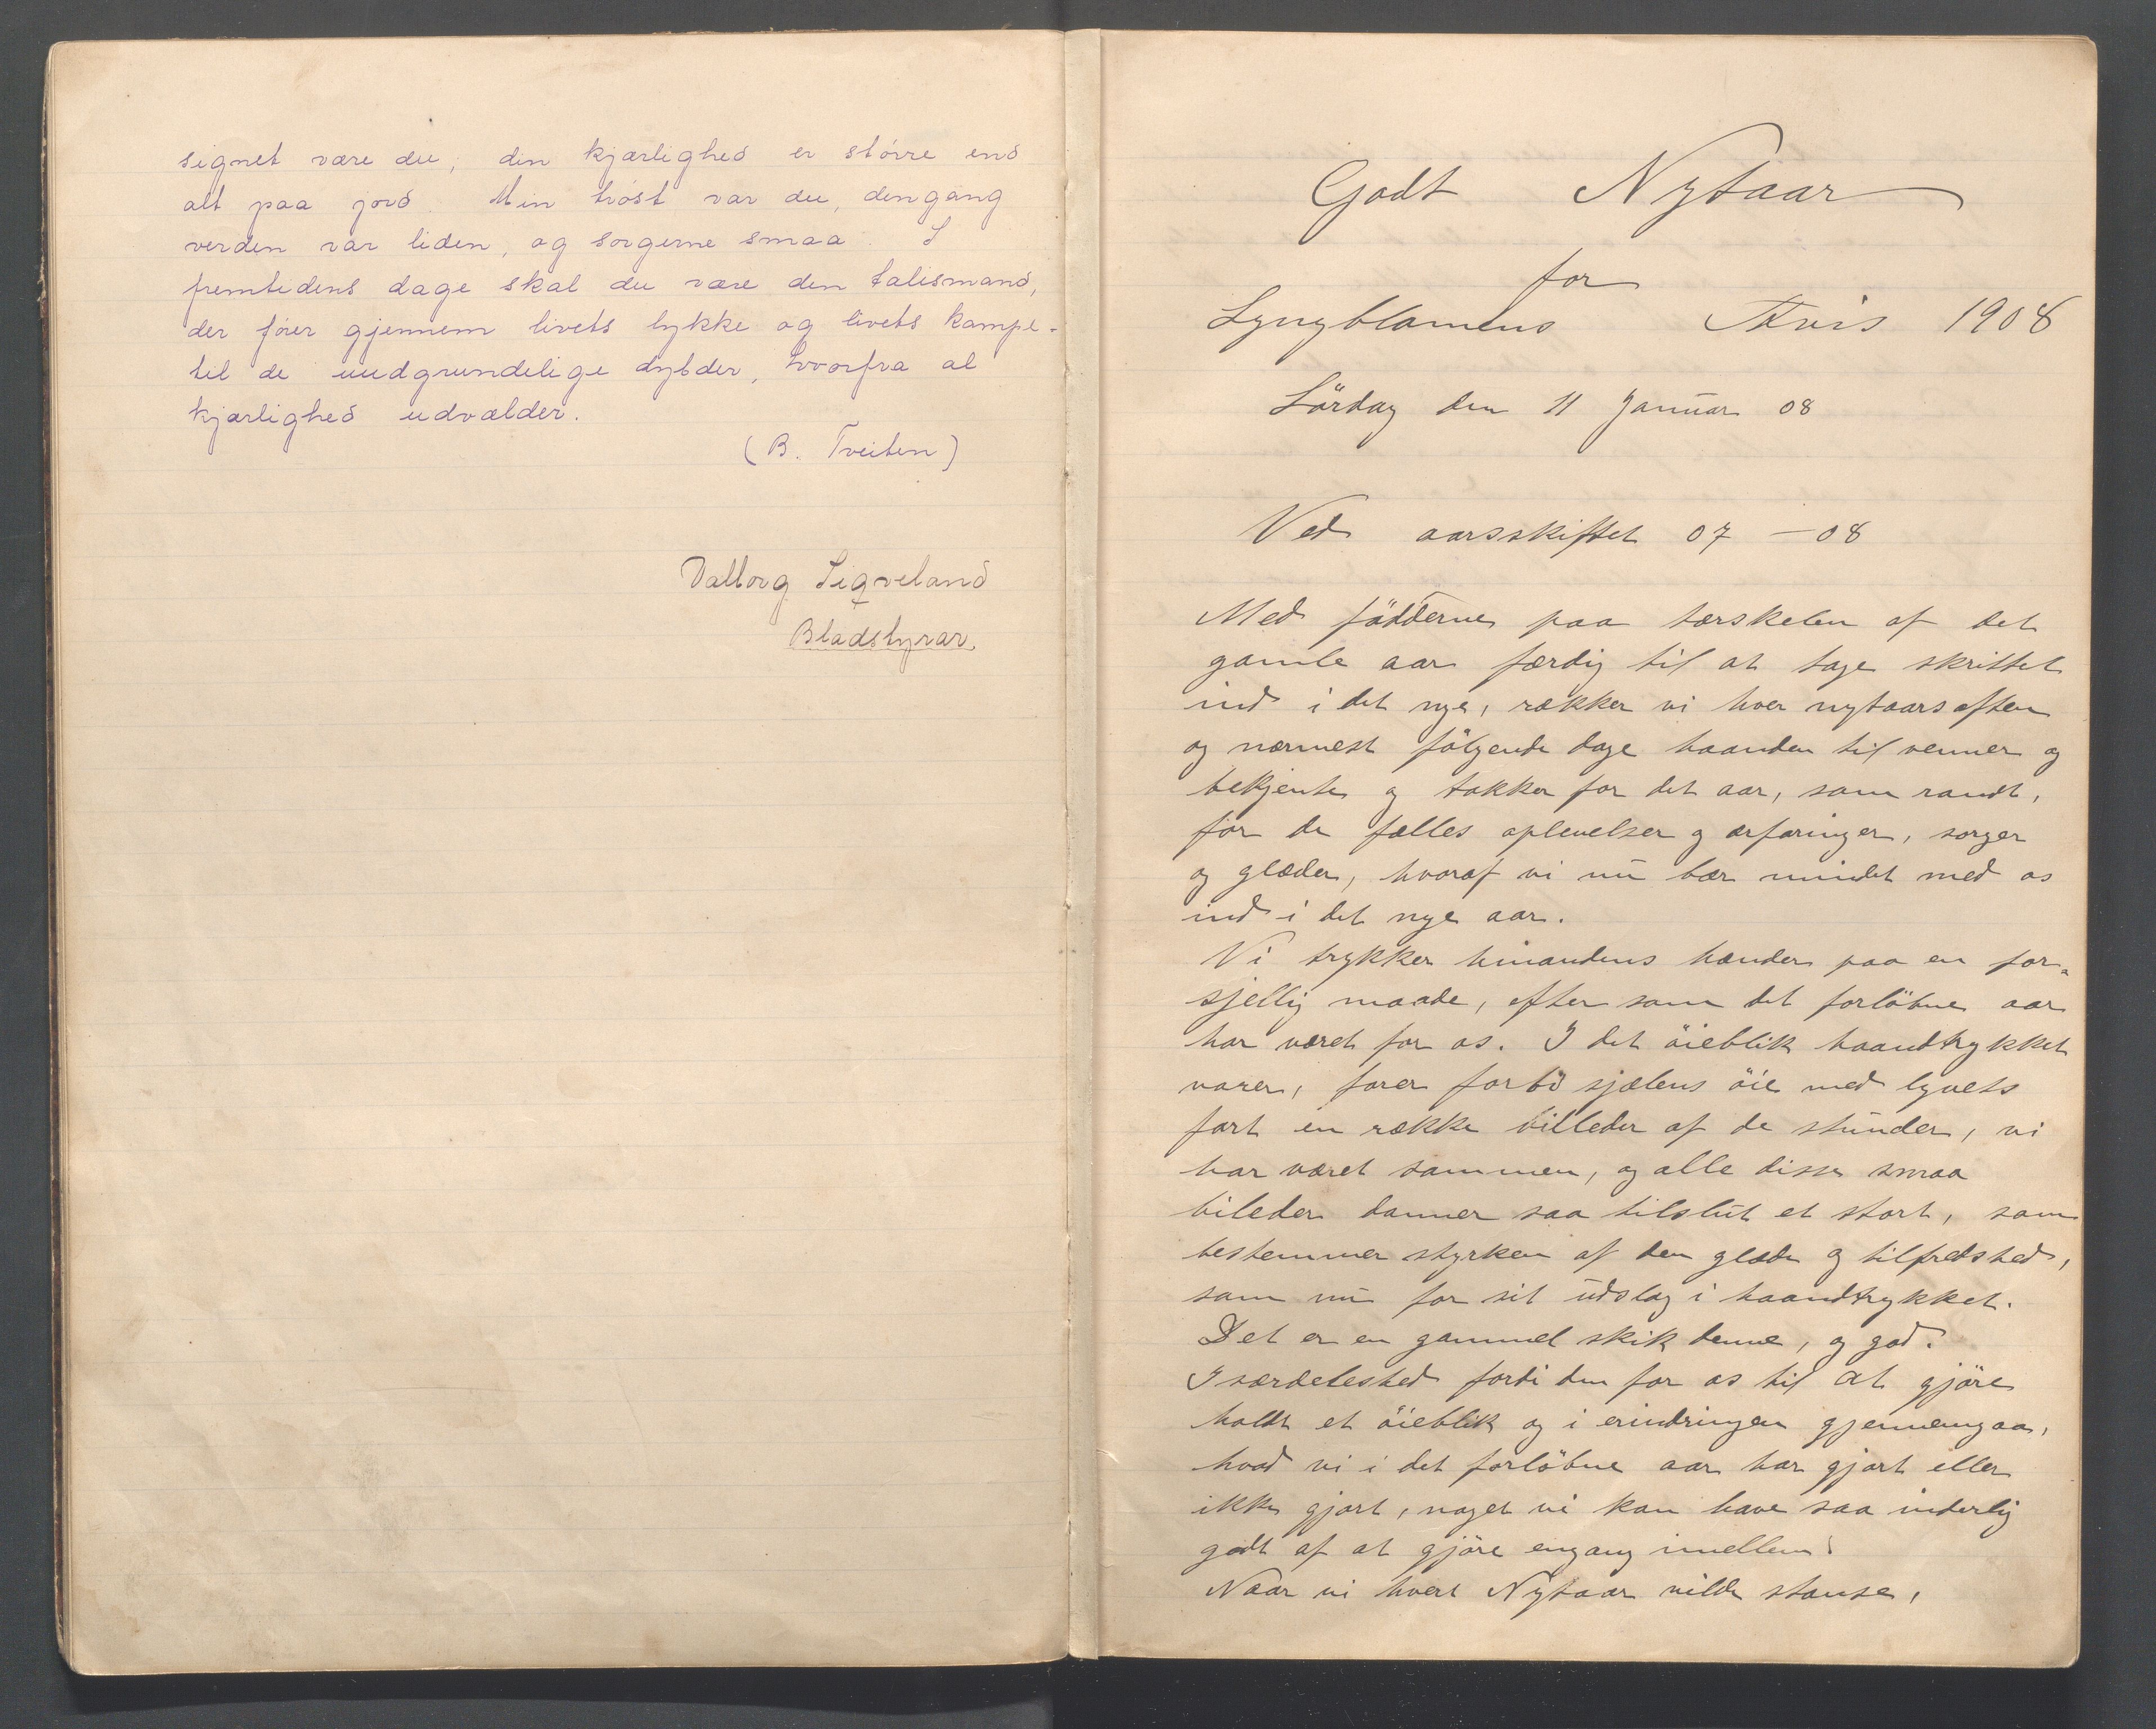 signet være du, din kjærlighed er større end
alt paa jord. Min trøst var du, dengang
verden var liden, og sorgerne smaa. I
fremtidens dage skal du være den talismand,
der fører gjennem livets lykke og livets kampe-
til de uudgrundelige dybder, hvorfra al
kjærlighed udvælder.
(B. Tveiten)
Valborg Sigveland
Bladstyrar.
Godt Nytaar
for
Lyngblomens Avis 1908
Lördag den 11 Januar 08
Ved aarsskiftet 07 – 08
Med födderne paa tærskelen af det
gamle aar færdig til at tage skrittet
ind i det nye, rækker vi hver nytaarsaften
og nærmest fölgende dage haanden til venner og
bekjente og takker for det aar, som randt,
for de fælles oplevelser og erfaringer, sorger
og glæder, hvoraf vi nu bær mindet med os
ind i det nye aar.
Vi trykker hinandens hænder paa en for-
sjellig maade, efter som det forløbne aar
har været for os. I det öieblik haandtrykket
varer, farer forbi sjælens öie med lynets
fart en række billeder af de stunder, vi
har været sammen, og alle disse smaa
bileder danner saa tilslut et stort, som
bestemmer styrken af den glæde og tilfredshed,
som nu for sit udslag i haandtrykket.
Det er en gammel skik denne, og god.
Isærdeleshed fordi den for os til at gjöre
holdt et öieblik og i erindringen gjennemgaa,
hvad vi i det forlöbne aar har gjort eller
ikke gjort, noget vi kan have saa inderlig
godt af at gjöre engang imellem.
Naar vi hvert Nytaar vilde stanse,